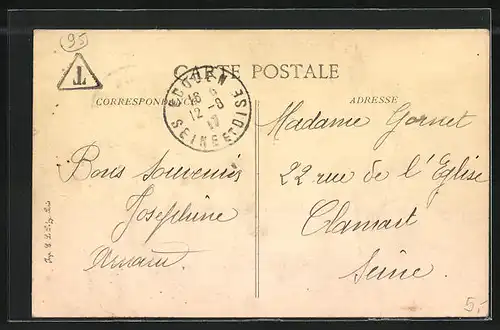 95
T
CARTE POSTALE
CORRESPONDANCE
ADRESSE
ECOUEN
16
12 -8
17
SEINE ET OISE
Bons souvenirs
Joséphine
Madame Gornet
22 rue de l'Eglise
Clamart
Seine.
5.-